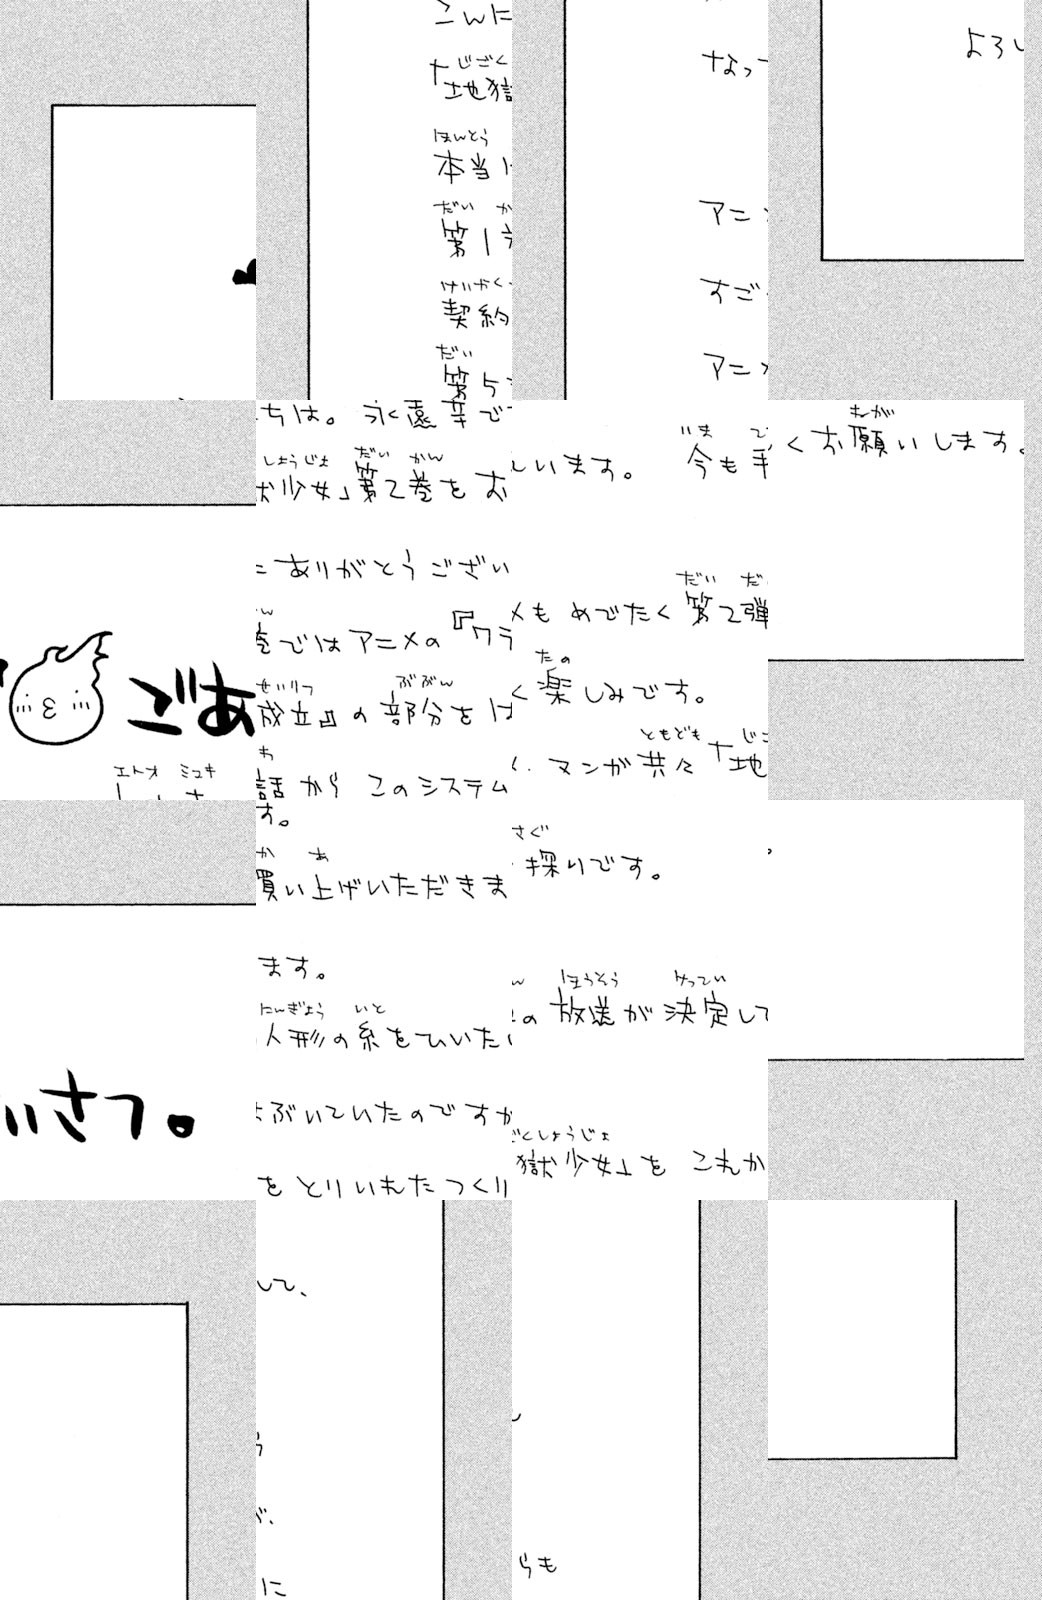 ごあいさつ。
エトオ ミユキ
こんにちは。永遠幸です。
じごくしょうじょ だい かん か あ
「地獄少女」第2巻をお買い上げいただきまして、
ほんとう
本当にありがとうございます。
だい かん にんぎょう いと
第1巻ではアニメの『ワラ人形の糸をひいたら
けいやくせいりつ ぶぶん
契約成立』の部分をはぶいていたのですが、
だい わ
第5話からこのシステムをとりいれたつくりに
いま てさぐ
なっています。 今も手探りです。
だい だん ほうそう けってい
アニメもめでたく第2弾の放送が決定して、
たの
すごく楽しみです。
ともども じごくしょうじょ
アニメ、マンガ共々「地獄少女」をこれからも
ねが
よろしくお願いします。